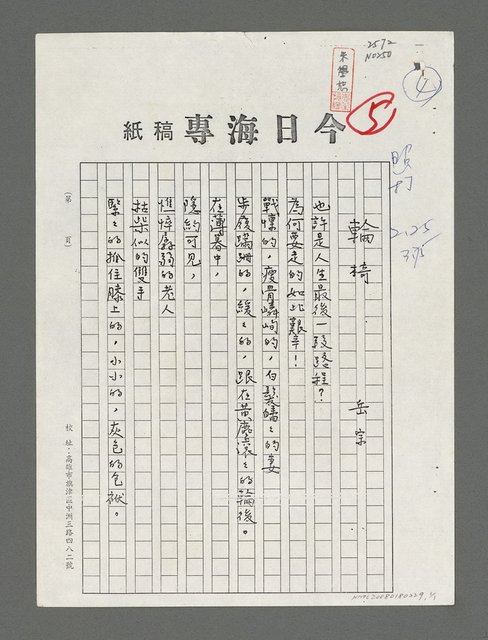 2572
N0250
④
⑤
今日海專稿紙
照打
輪椅
岳宗
也許是人生最後一段路程？
為何要走的如此艱辛！
戰慄的，瘦骨嶙峋的，白髮皤ミ的妻
步履蹣跚的，緩ミ的，跟在黃塵滾ミ的輪後。
在薄暮中，
隱約可見，
憔悴孱弱的老人
枯柴似的雙手
緊ミ的抓住膝上的，小小的，灰色的包袱。
（第　頁）
校址：高雄市旗津區中洲三路四八二號
NMTL20080180229,1/1